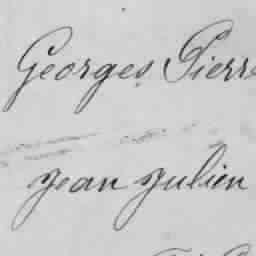 Georges Pierre
jean julien